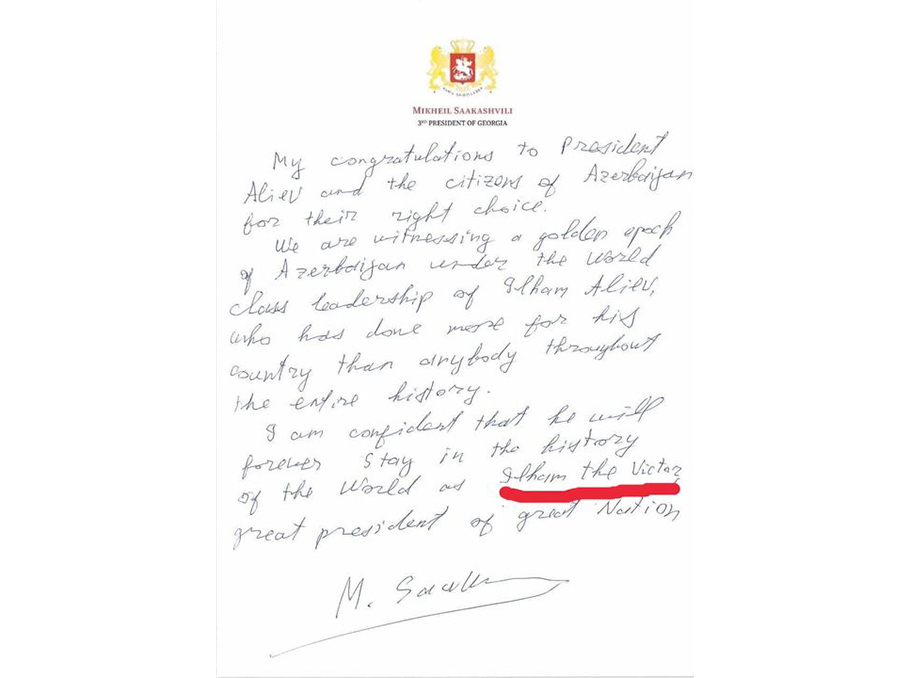 MIKHEIL SAAKASHVILI
3RD PRESIDENT OF GEORGIA
My congratulations to President
Aliev and the citizens of Azerbaijan
for their right choice.
We are witnessing a golden epoch
of Azerbaijan under the World
class leadership of Ilham Aliev,
who has done more for his
country than anybody throughout
the entire history.
I am confident that he will
forever stay in the history
of the World as Ilham the Victor
great president of great Nation
M. Saak